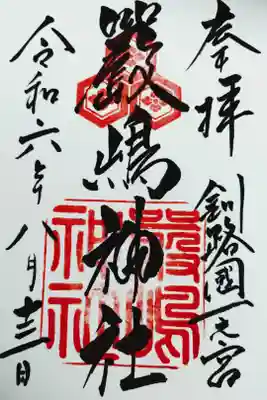 奉拝
釧路國一之宮
嚴嶋神社
嚴嶋神社
令和六年八月十三日